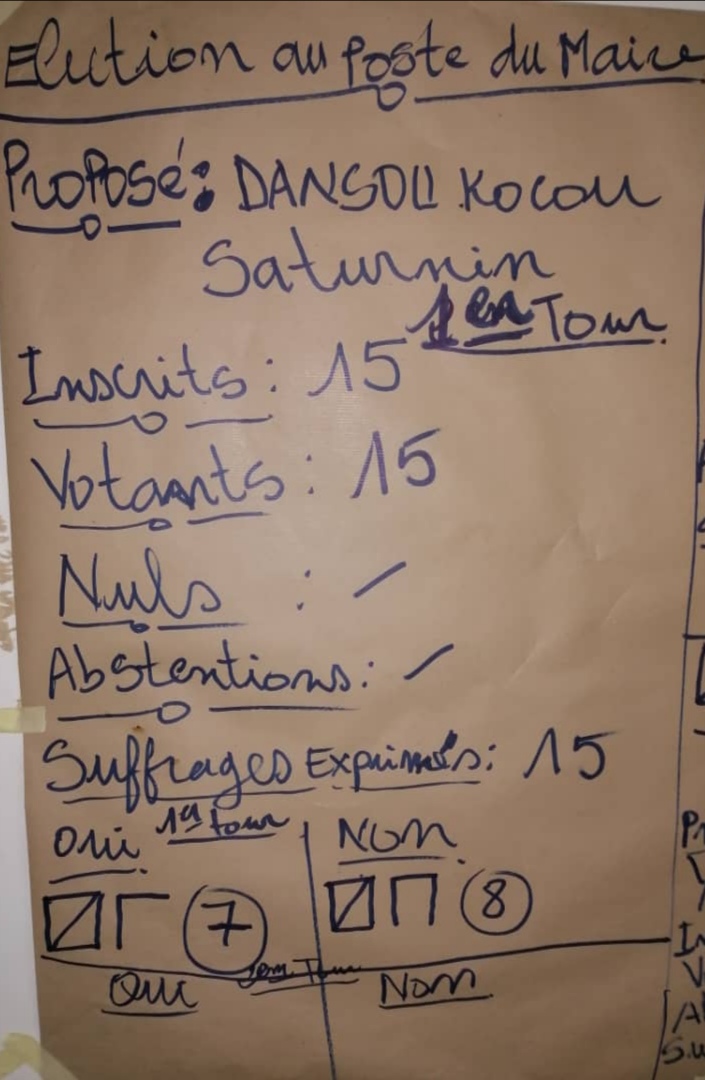 Election au poste du Maire
Proposé: DANSOU Kocou
Saturnin
1er Tour
Inscrits: 15
Votants: 15
Nuls : /
Abstentions: /
Suffrages Exprimés: 15
1er tour
Oui Non
7 8
2em Tour
Oui Non